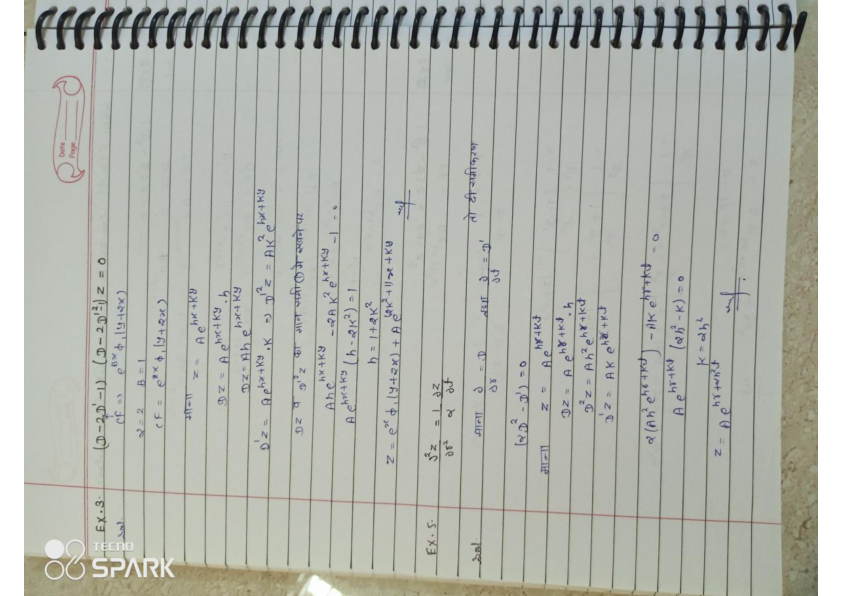 Date
Page
EX.3. (D-2D'-1) (D-2D'²-1) z = 0
CF => e^{Bx} φ₁(y+2x)
α = 2 B = 1
CF = e^{x} φ₁(y+2x)
माना z = A e^{hx+Ky}
Dz = A e^{hx+Ky} . h
Dz = A h e^{hx+Ky}
D'z = A e^{hx+Ky} . K => D'²z = AK² e^{hx+Ky}
Dz व D'²z का मान समी ① मे रखने पर
A h e^{hx+Ky} - 2AK² e^{hx+Ky} - 1 = 0
A e^{hx+Ky} (h - 2K²) = 1
h = 1+2K²
z = e^{x} φ₁(y+2x) + A e^{(2K²+1)x+Ky}
EX.5. ∂²z/∂x² = 1/α ∂z/∂t
माना ∂/∂x = D तथा ∂/∂t = D' तो दी समीकरण
(αD² - D') = 0
माना z = A e^{hx+Kt}
Dz = A e^{hx+Kt} . h
D²z = A h² e^{hx+Kt}
D'z = A K e^{hx+Kt}
α(A h² e^{hx+Kt}) - AK e^{hx+Kt} = 0
A e^{hx+Kt} (αh² - K) = 0
K = αh²
z = A e^{hx+αh²t}
TECNO
SPARK